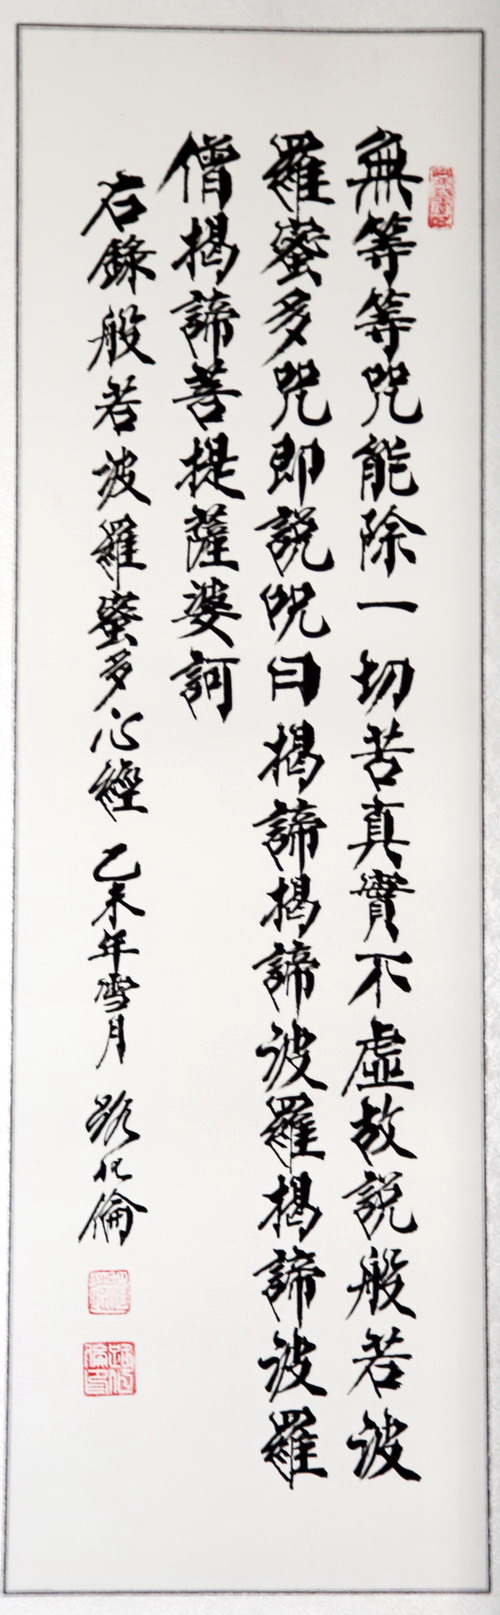 無等等咒能除一切苦真實不虛故說般若波
羅蜜多咒即說呪曰揭諦揭諦波羅揭諦波羅
僧揭諦菩提薩婆訶
右錄般若波羅蜜多心經 乙未年雪月 路化倫